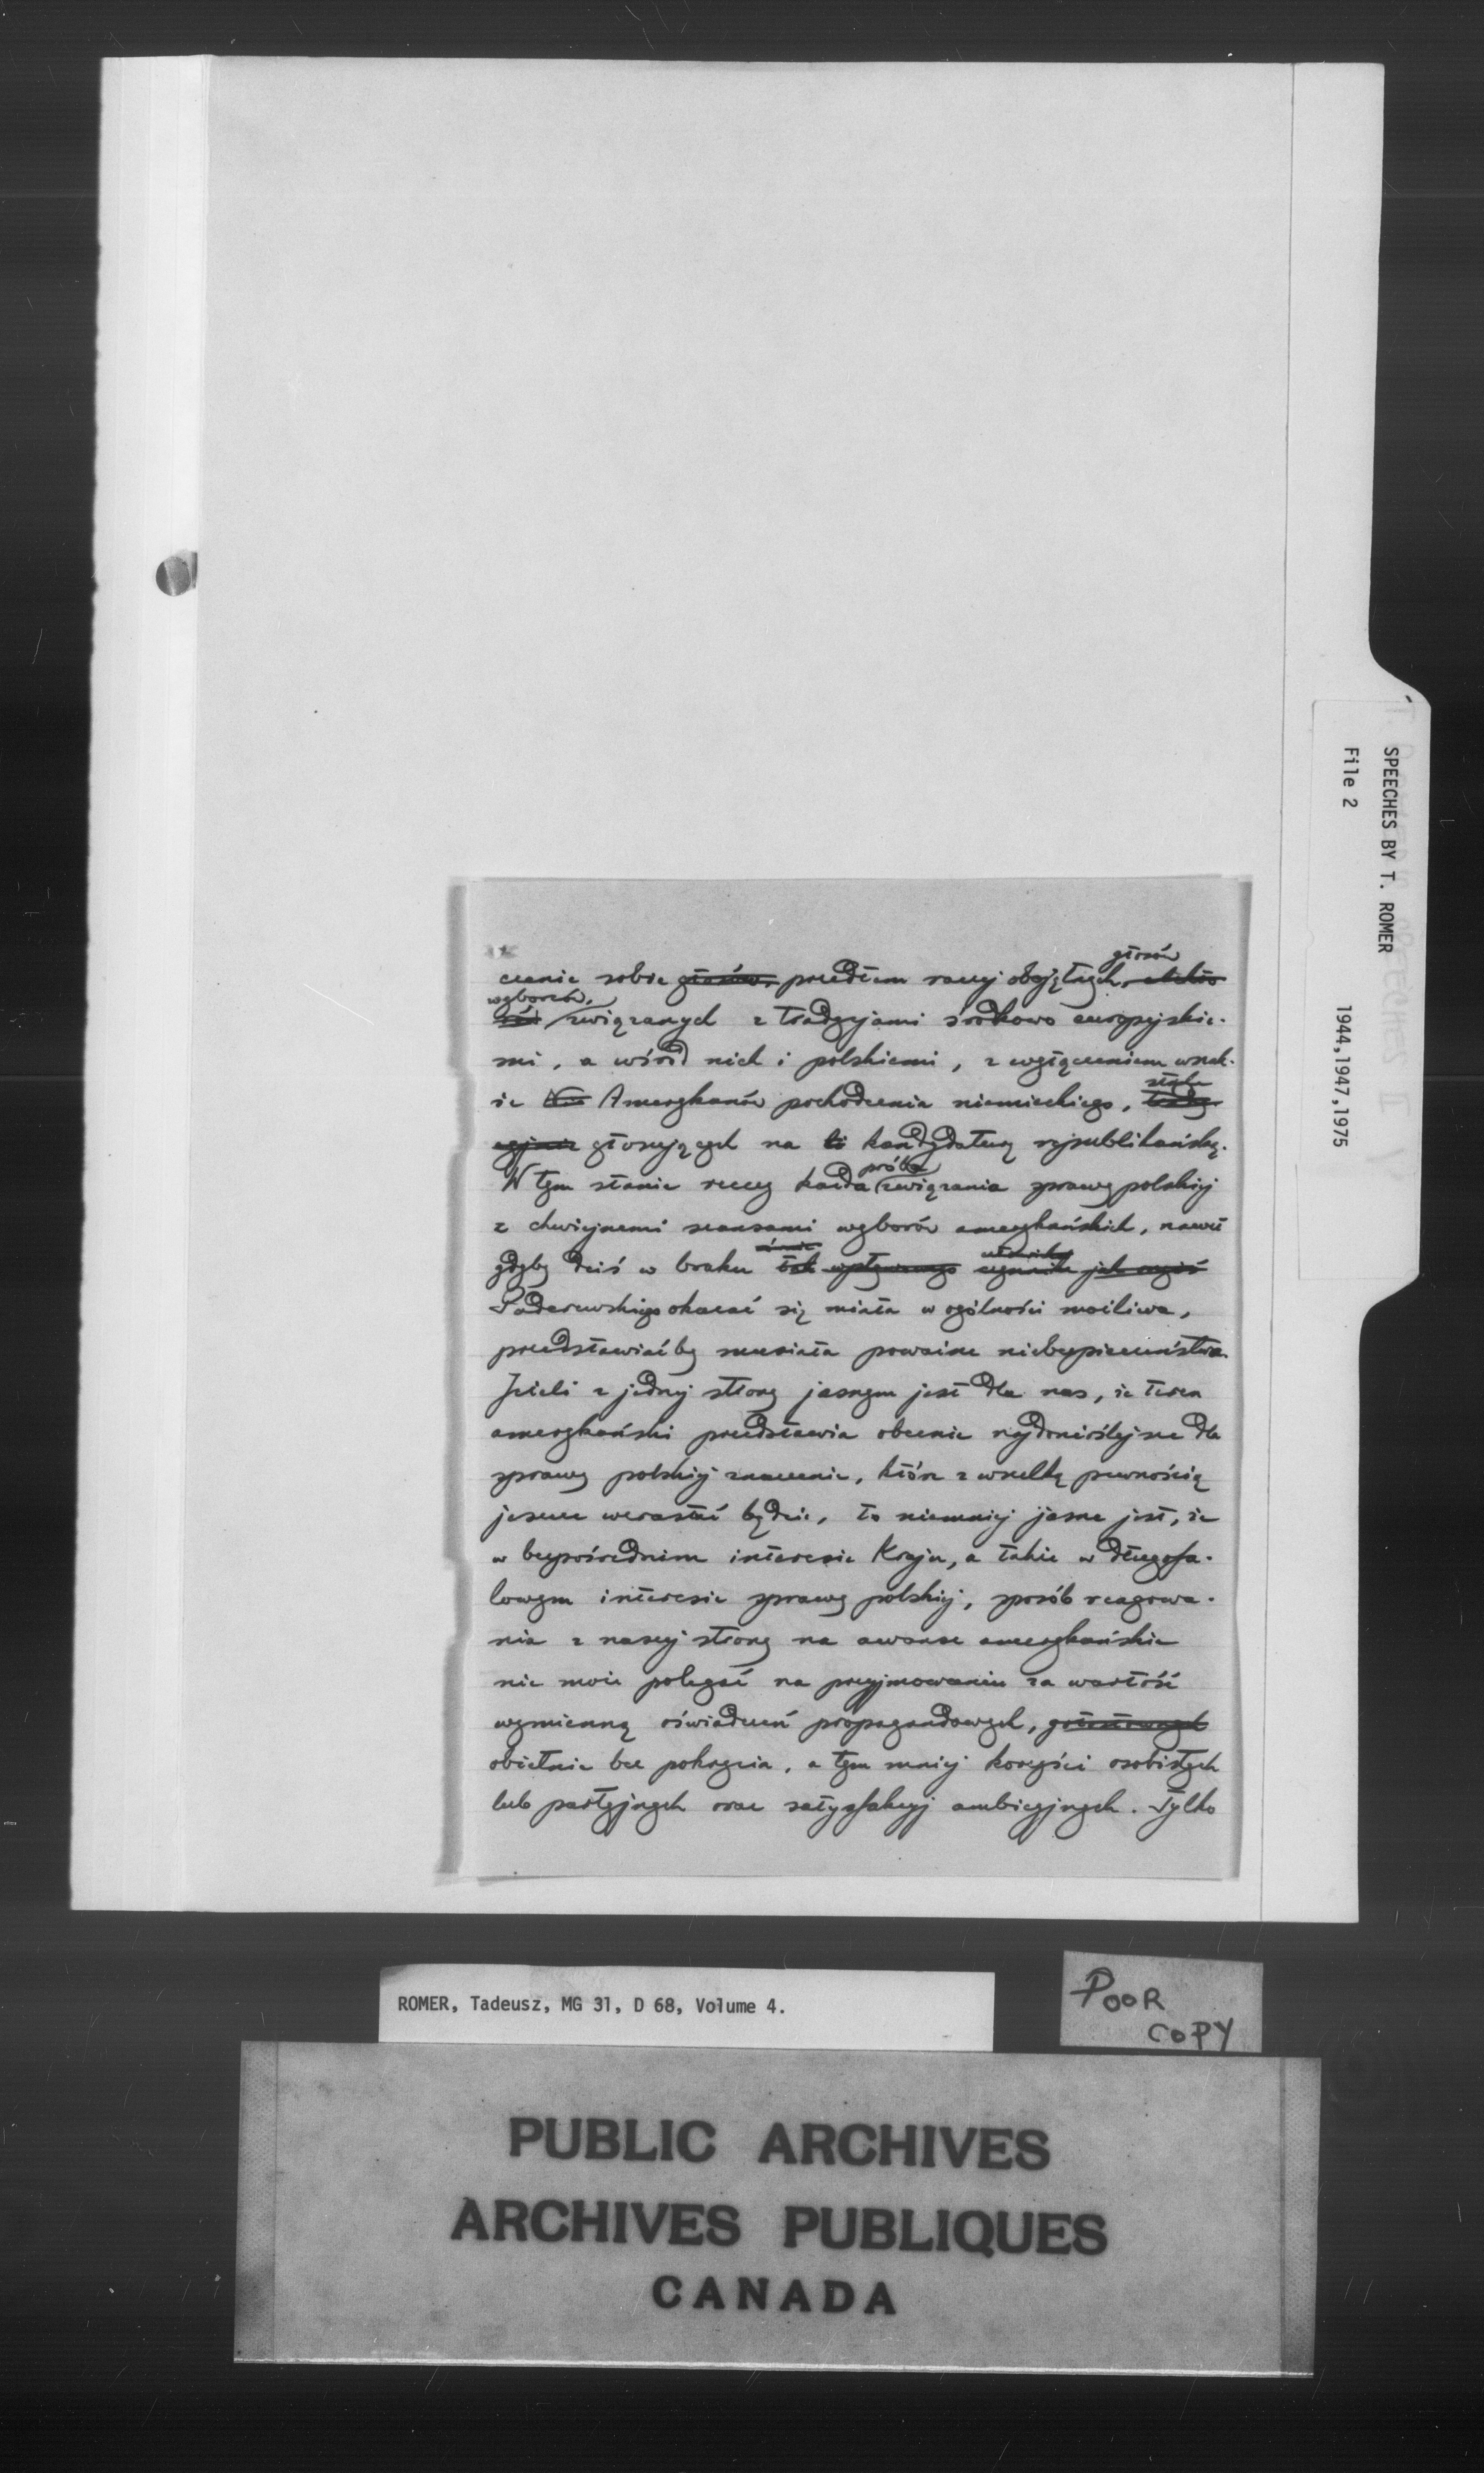 SPEECHES BY T. ROMER
File 2
1944,1947,1975
głosów
czenie sobie głosów, przedtem raczej obojętnych,
wyborców,
związanych z tradycjami środkowo europejskie-
mi, a wśród nich i polskiemi, z wyłączeniem wszak-
stale
że Amerykanów pochodzenia niemieckiego,
głosujących na kandydaturę republikańską.
próba
W tym stanie rzeczy każda związania sprawy polskiej
z chwiejnemi szansami wyborów amerykańskich, nawet
gdyby dziś w braku tak wpływowego czynnika jak ongiś
Paderewskiego okazać się miała w ogólności możliwa,
przedstawiaćby musiała poważne niebezpieczeństwa.
Jeżeli z jednej strony jasnym jest dla nas, że teren
amerykański przedstawia obecnie najdonioślejsze dla
sprawy polskiej znaczenie, które z wszelką pewnością
jeszcze wzrastać będzie, to niemniej jasne jest, że
w bezpośrednim interesie Kraju, a także w długofa-
lowym interesie sprawy polskiej, sposób reagowa-
nia z naszej strony na awanse amerykańskie
nie może polegać na przyjmowaniu za wartość
wymienną oświadczeń propagandowych, gołosłownych
obietnic bez pokrycia, a tym mniej korzyści osobistych
lub partyjnych oraz satysfakcyj ambicyjnych. Tylko
ROMER, Tadeusz, MG 31, D 68, Volume 4.
POOR
COPY
PUBLIC ARCHIVES
ARCHIVES PUBLIQUES
CANADA